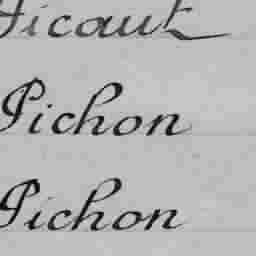 Picaut
Pichon
Pichon